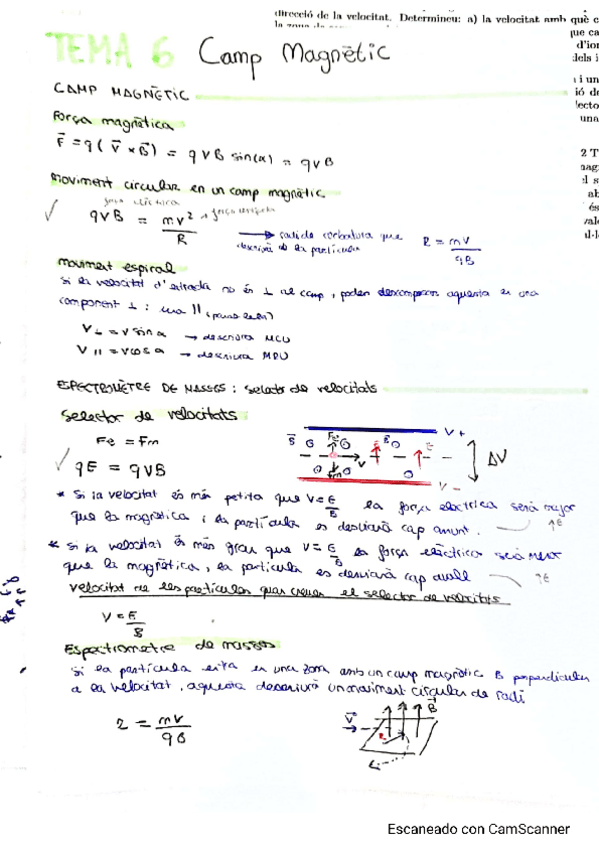 direcció de la velocitat. Determineu: a) la velocitat amb què c
TEMA 6 Camp Magnètic
CAMP MAGNÈTIC
Força magnètica
F = q ( V × B ) = q V B sin(α) = q V B
Moviment circular en un camp magnètic
força elèctrica
qVB = mv² / R
radi de curvatura que
descriurà la partícula
R = mV / qB
Moviment espiral
Si la velocitat d'entrada no és ⊥ al camp, podem descomposar aquesta en una
component ⊥ i una ||
V⊥ = V sin α → descriura MCU
V|| = V cos α → descriura MRU
ESPECTRÒMETRE DE MASSES: selector de velocitats
Selector de velocitats
Fe = Fm
qE = qVB
V+
ΔV
V-
* Si la velocitat és més petita que V = E/B la força electrica serà major
que la magnètica i la partícula es desviarà cap amunt.
* Si la velocitat és més gran que V = E/B la força elèctrica serà menor
que la magnètica, la partícula es desviarà cap avall
velocitat de les partícules que creuen el selector de velocitats
V = E / B
Espectrometre de masses
Si la partícula entra en una zona amb un camp magnètic B perpendicular
a la velocitat, aquesta descriurà un moviment circular de radi
r = mv / qB
V
B
Escaneado con CamScanner